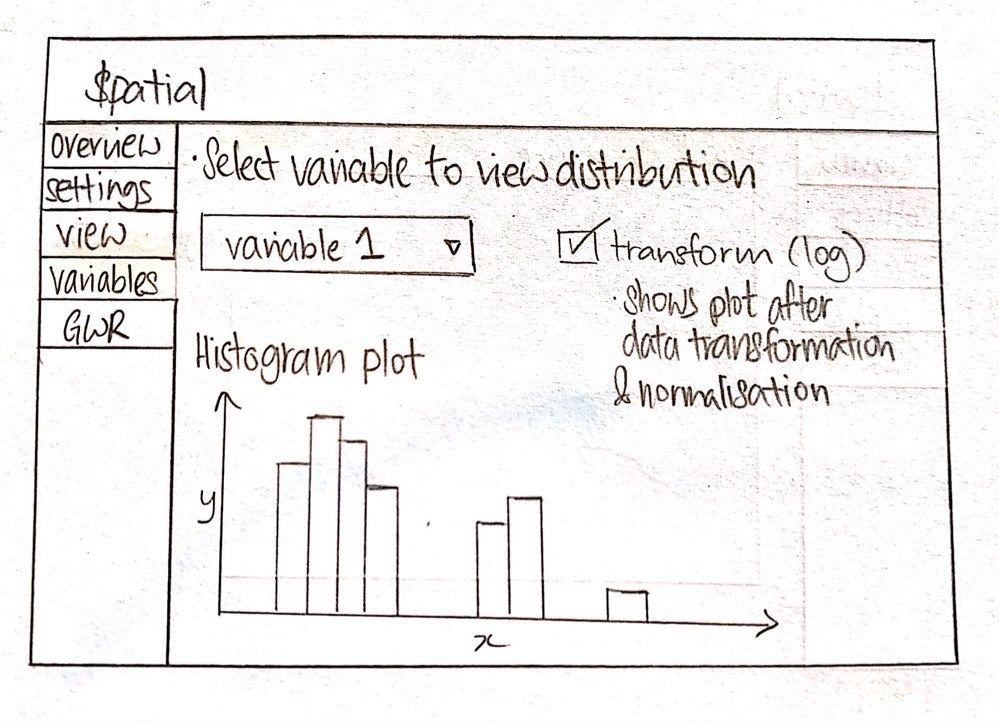 $patial
overview
settings
view
variables
GWR
·Select variable to view distribution
variable 1
transform (log)
·shows plot after
data transformation
& normalisation
Histogram plot
y
x